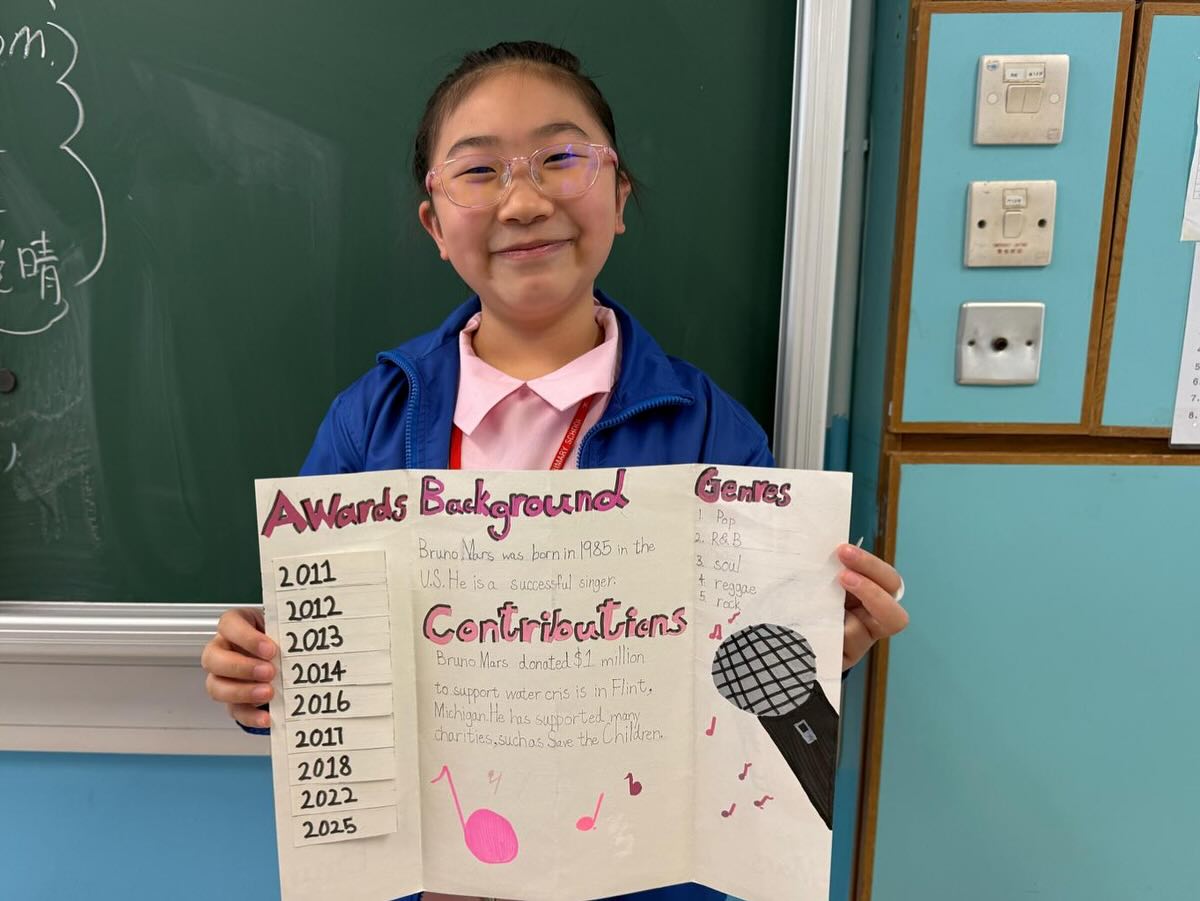 om.
晴
PRIMARY SCHOOL
Awards
2011
2012
2013
2014
2016
2017
2018
2022
2025
Background
Bruno Mars was born in 1985 in the
U.S. He is a successful singer.
Contributions
Bruno Mars donated $1 million
to support water cris is in Flint,
Michigan. He has supported many
charities, such as Save the Children.
Genres
1. Pop
2. R&B
3. soul
4. reggae
5. rock
5.
6.
7.
8.